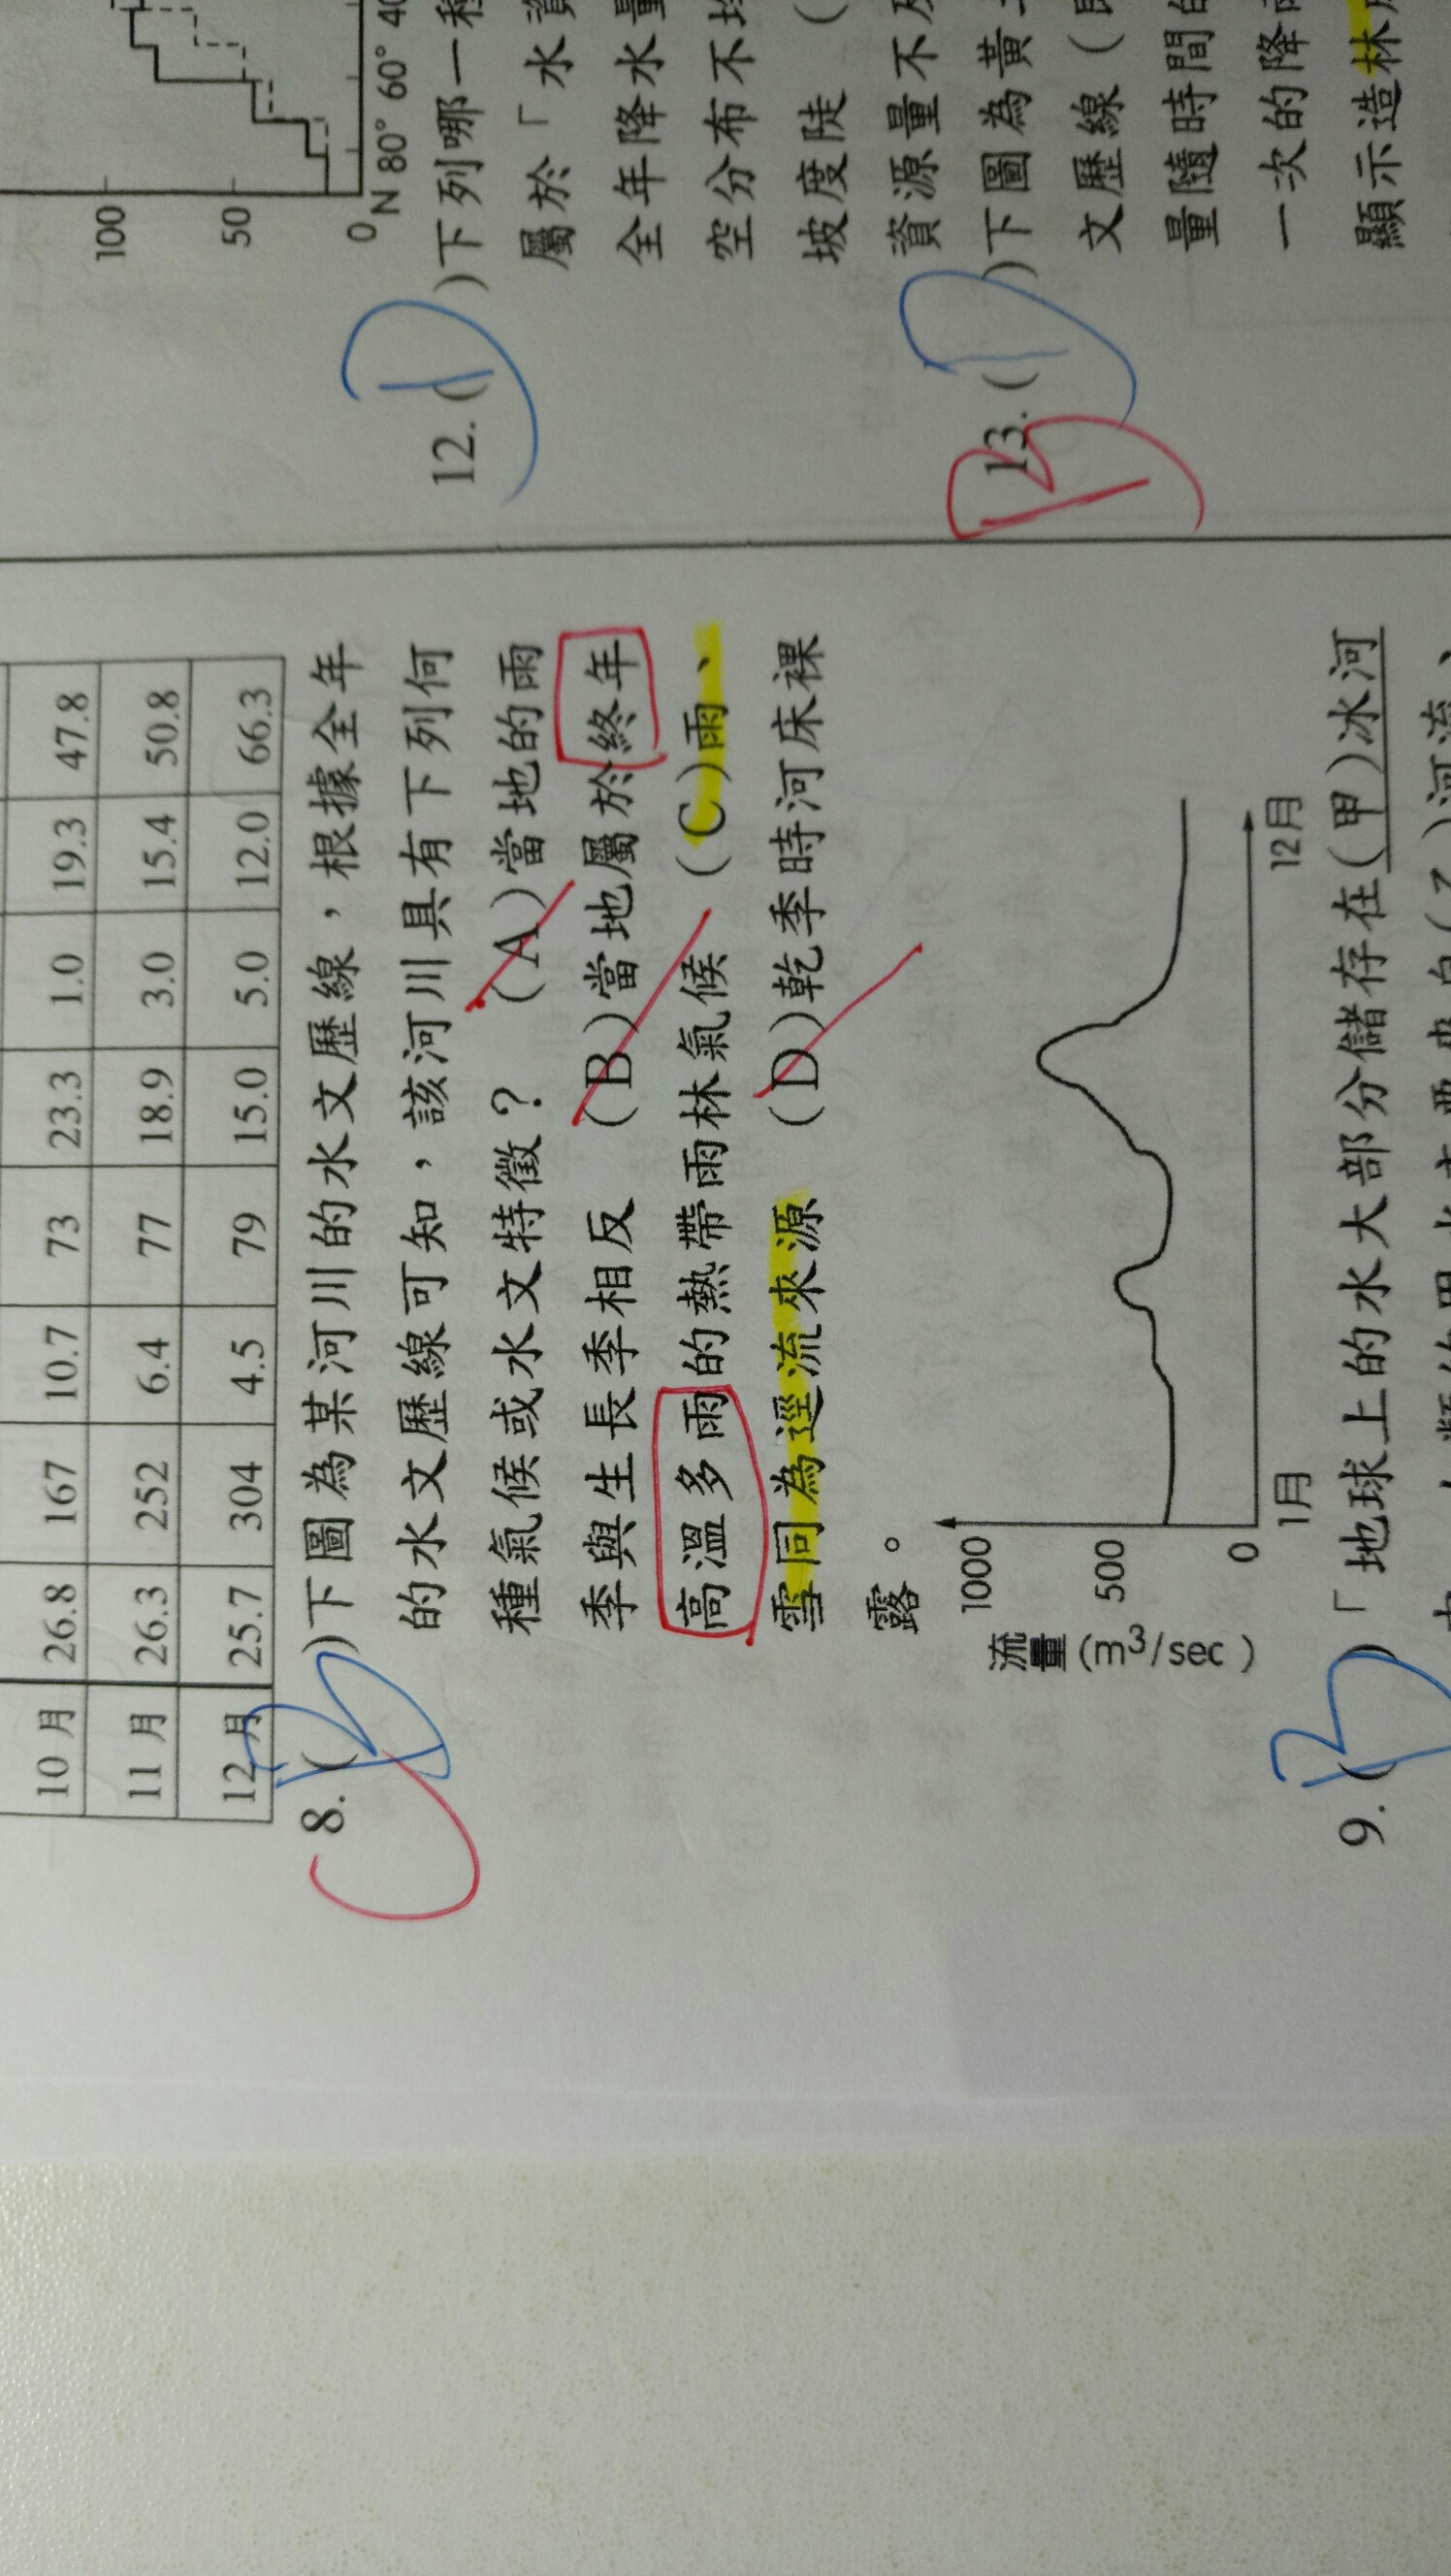 10 月 26.8 167 10.7 73 23.3 1.0 19.3 47.8
11 月 26.3 252 6.4 77 18.9 3.0 15.4 50.8
12 月 25.7 304 4.5 79 15.0 5.0 12.0 66.3
8. ( B )下圖為某河川的水文歷線，根據全年
C
的水文歷線可知，該河川具有下列何
種氣候或水文特徵？ (A)當地的雨
季與生長季相反 (B)當地屬於終年
高溫多雨的熱帶雨林氣候 (C)雨、
雪同為逕流來源 (D)乾季時河床裸
露。
流量(m³/sec)
1000
500
0
1月 12月
9. ( B )「地球上的水大部分儲存在(甲)冰河
(乙)河流、
100
50
0
N 80° 60° 40
12. ( D )下列哪一種
屬於「水資
全年降水量
空分布不均
坡度陡 (
資源量不足
13. ( D )下圖為黃土
B
文歷線(
量隨時間的
一次的降雨
顯示造林